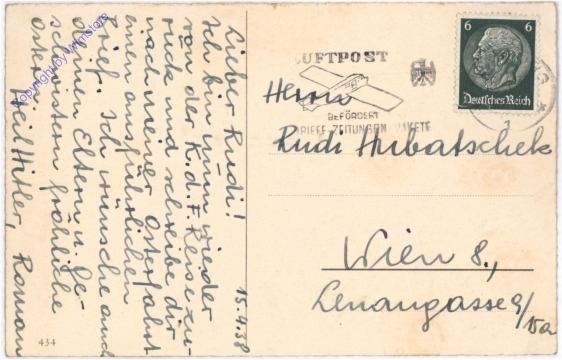 Lieber Rudi!
Ich bin nun wieder
von der K.d.F. Reise zu-
rück und schreibe dir
nach meiner Osterfahrt
einen ausführlichen
Brief. Ich wünsche auch
deinen Eltern u. Ge-
schwistern fröhliche
Ostern
Heil Hitler, Roman
15.4.38
434
Copyright by
LUFTPOST
BEFÖRDERT
BRIEFE ZEITUNGEN PAKETE
6 6
Deutsches Reich
Herrn
Rudi Hubatschek
Wien 8.,
Lenaugasse 9/
15a